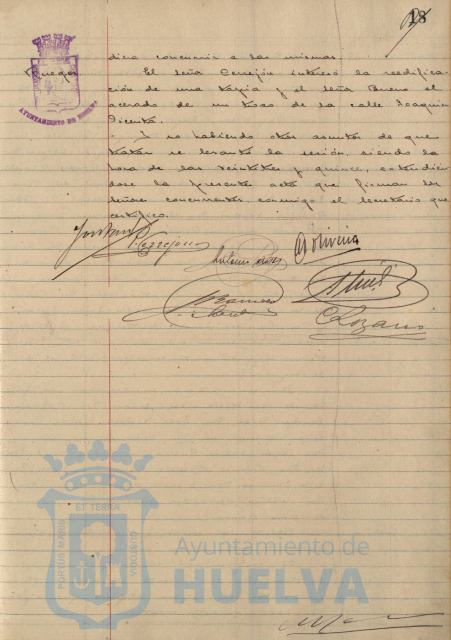 18
diera concurrir a las mismas.
Ruegos El señor Cerrejón interesó la reedifica-
ción de una tapia y el señor Bueno el
acerado de un trozo de la calle Joaquín
Vicente.
Y no habiendo otros asuntos de que
tratar se levantó la sesión, siendo la
hora de las veintitrés y quince, extendién-
dose la presente acta que firman los
señores concurrentes, conmigo el Secretario que
certifico.
AYUNTAMIENTO DE HUELVA
C Lozano
ET TERRA
PORTUS MARIS
CUSTODIA
Ayuntamiento de
HUELVA